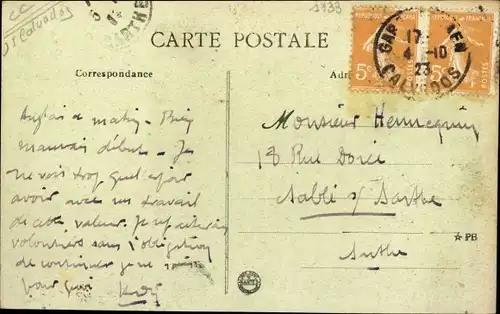 CC
Dt Calvados
SARTHE
1938
CARTE POSTALE
Correspondance
Adr
RÉPUBLIQUE
5c
POSTES
GARE CAEN
17
4 -10
23
CALVADOS
Anglais ce matin. Bien
mauvais début. Je
ne vois trop quel espoir
avoir avec un travail
de cette valeur. Je
volontiers sans l'obligation
de continuer que je ne
pour
Monsieur Hennequin
18 Rue Dorée
Sablé s/ Sarthe
Sarthe
PB